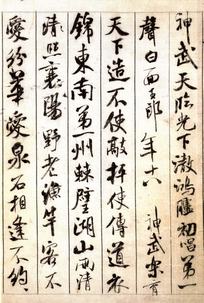 神武天臨光下澈鴻臚初唱第一
聲白面玉郎年十八神武樂育
天下造不使敲枰使傳道衣
錦東南第一州棘璧湖山兩清
照襄陽野老漁竿客不
愛紛華愛泉石相逢不約